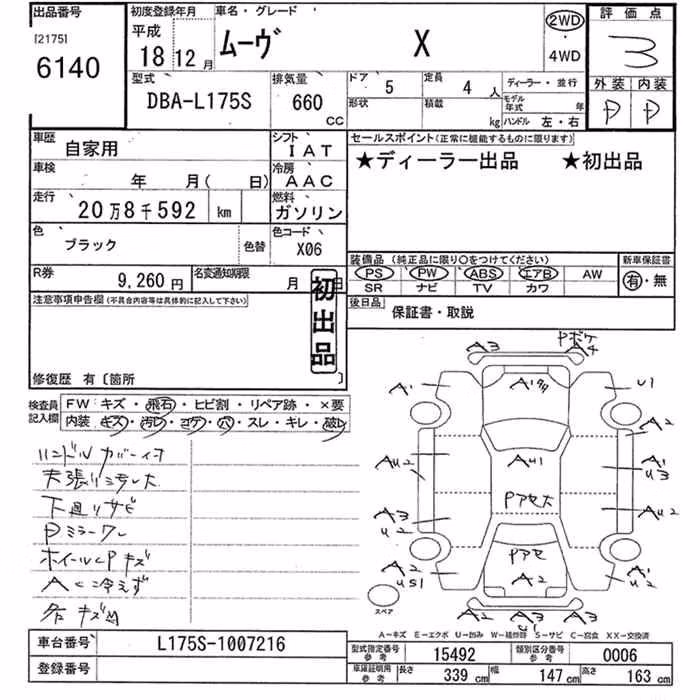 出品番号
[2175]
6140
初度登録年月
平成
18年 12月
車名・グレード
ムーヴ X
2WD
・
4WD
評価点
3
外装 内装
P P
型式
DBA-L175S
排気量
660
CC
ドア 5
形状
定員 4 人
積載 kg
ディーラー・並行
モデル年式 年
ハンドル 左・右
車歴
自家用
シフト
IAT
車検
年 月( 日)
冷房
AAC
走行
20万8千592 km
燃料
ガソリン
色
ブラック
色替
色コード
X06
R券
9,260円
名変通知期限
月 日
セールスポイント(正常に機能するものに限ります)
★ディーラー出品 ★初出品
装備品 (純正品に限り○をつけてください)
PS PW ABS エアB AW
SR ナビ TV カワ
新車保証書
有・無
後日品
保証書・取説
注意事項申告欄(不具合内容等は具体的に記入して下さい)
初出品
修復歴 有〔箇所 〕
検査員記入欄
FW キズ・飛石・ヒビ割・リペア跡・×要
内装 キズ・汚レ・コゲ・穴・スレ・キレ・破レ
ハンドルカバー付
天張り汚レ大
下廻りサビ
Pミラーワレ
ホイールCPキズ
AC冷えず
各キズ凹
A3
Pボケ
A4
A1
A1
U1
A2
AU2
AU1
A1
U3
Pアセ大
A3
U2
AU2
Pアセ
A2
A2
US1
A1
U2
A2
A3
U1
A3
スペア
A-キズ E-エクボ U-凹み W-補修跡 S-サビ C-腐食 XX-交換済
車台番号
L175S-1007216
登録番号
型式指定番号
参考
15492
類別区分番号
参考
0006
車庫証明用
参考
長さ 339 cm
幅 147 cm
高さ 163 cm